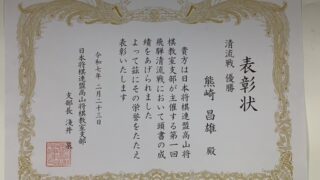 表彰状
清流戦 優勝
熊崎 昌雄 殿
貴方は日本将棋連盟高山将
棋教室支部が主催する第一回
飛騨清流戦において頭書の成
績をあげられました
よって茲にその栄誉をたたえ
表彰いたします
令和七年 二月二十三日
日本将棋連盟高山将棋教室支部
支部長 浅井